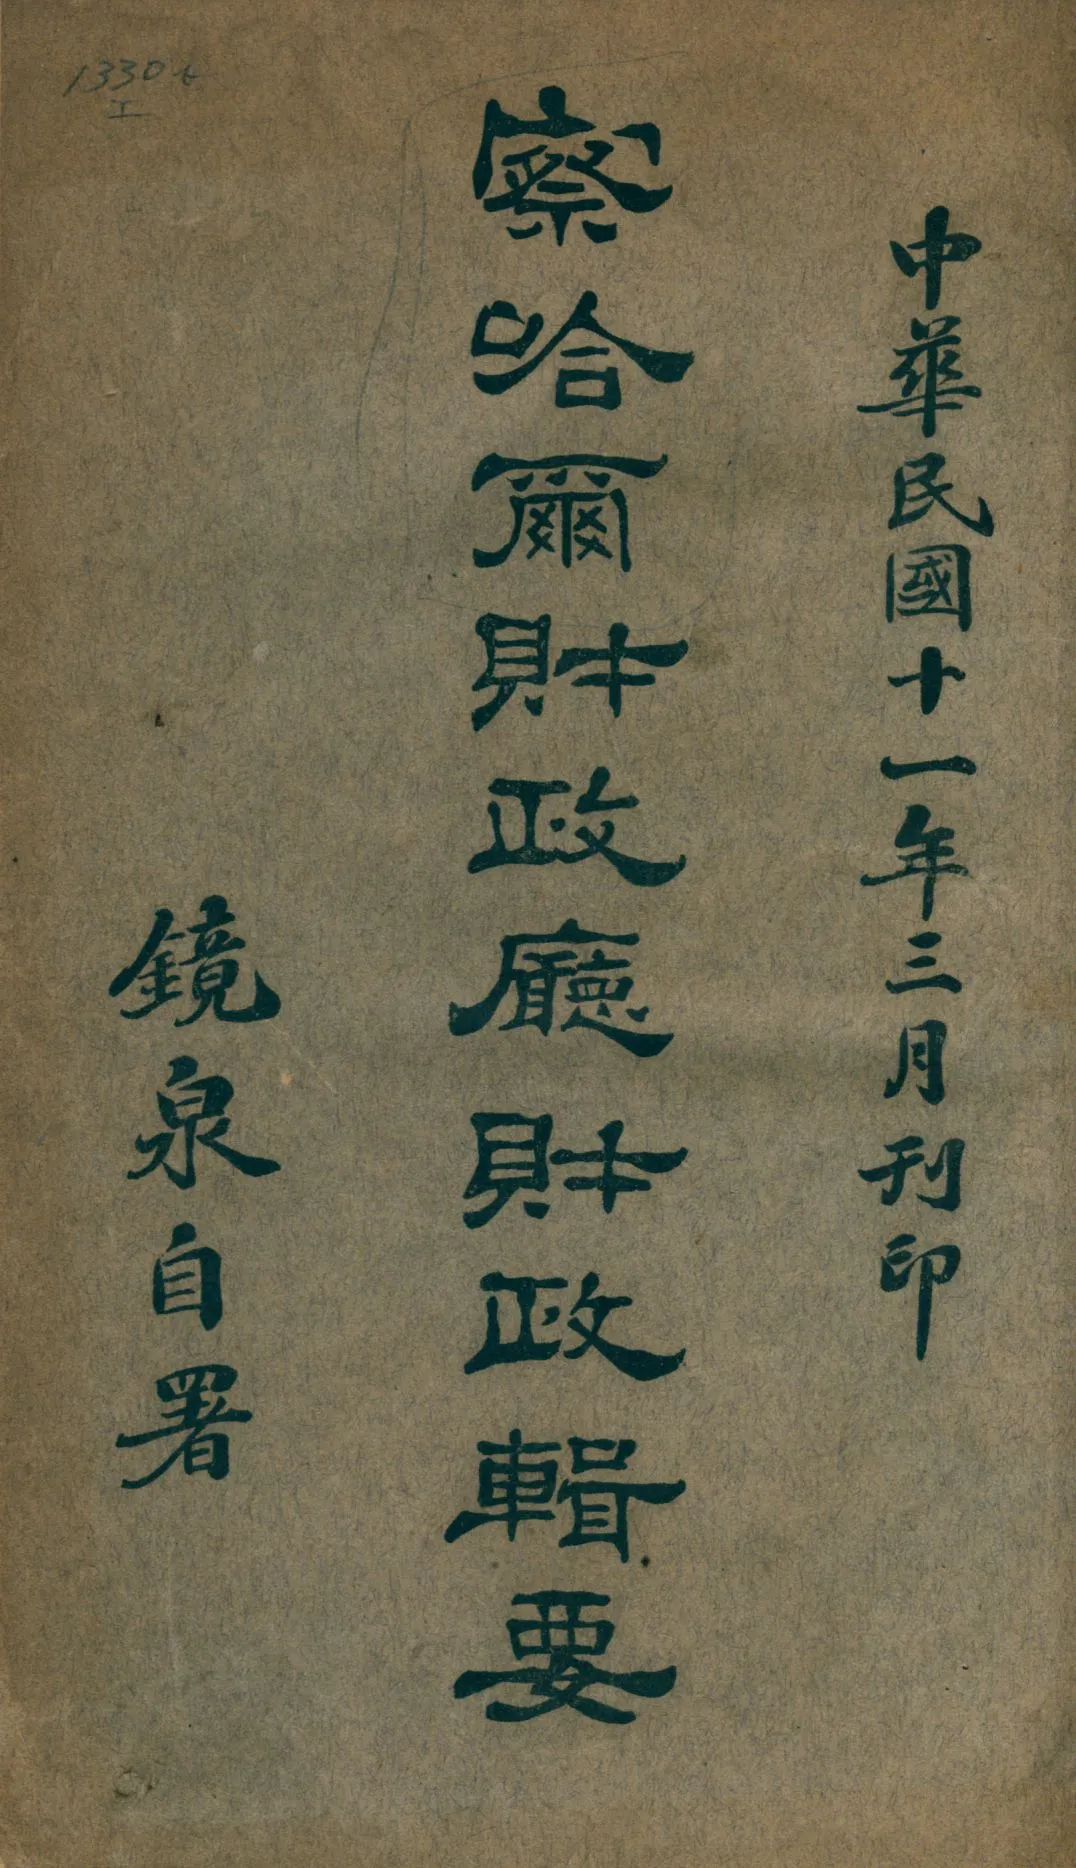 中華民國十一年三月刊印
察哈爾財政廳財政輯要
鏡泉自署
1330